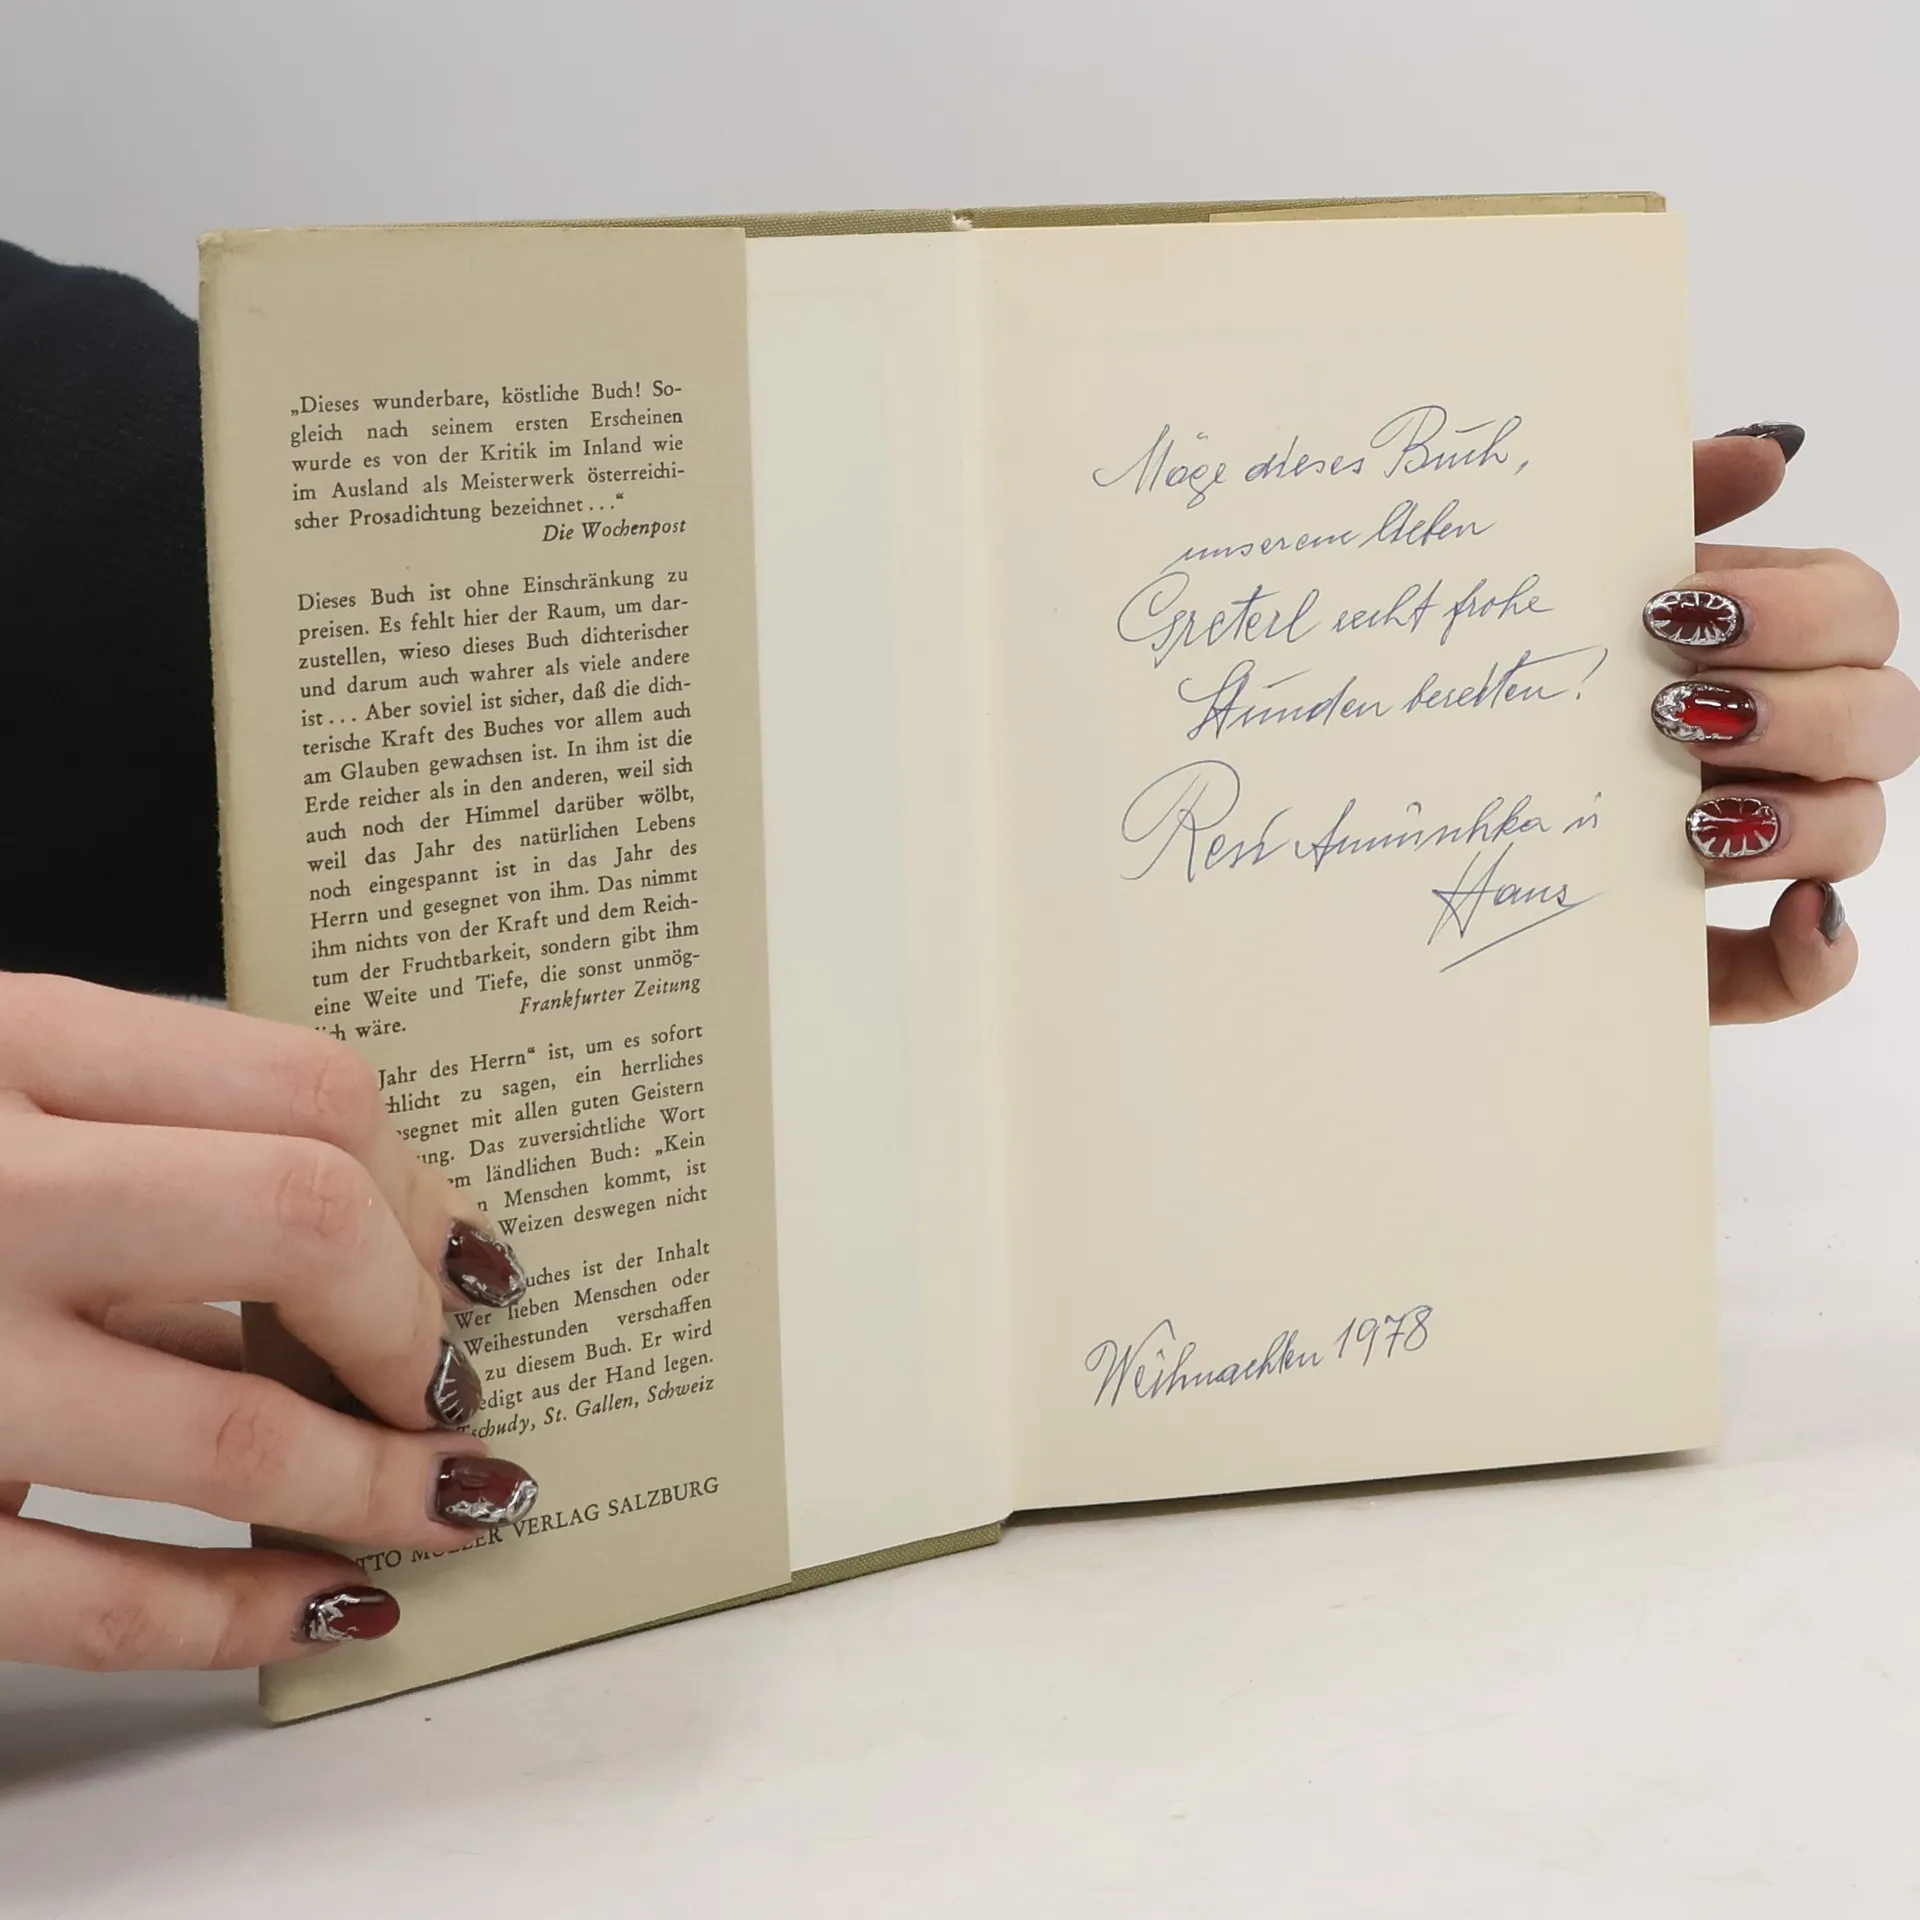 „Dieses wunderbare, köstliche Buch! So-
gleich nach seinem ersten Erscheinen
wurde es von der Kritik im Inland wie
im Ausland als Meisterwerk österreichi-
scher Prosadichtung bezeichnet . . .“
Die Wochenpost
Dieses Buch ist ohne Einschränkung zu
preisen. Es fehlt hier der Raum, um dar-
zustellen, wieso dieses Buch dichterischer
und darum auch wahrer als viele andere
ist . . . Aber soviel ist sicher, daß die dich-
terische Kraft des Buches vor allem auch
am Glauben gewachsen ist. In ihm ist die
Erde reicher als in den anderen, weil sich
auch noch der Himmel darüber wölbt,
weil das Jahr des natürlichen Lebens
noch eingespannt ist in das Jahr des
Herrn und gesegnet von ihm. Das nimmt
ihm nichts von der Kraft und dem Reich-
tum der Fruchtbarkeit, sondern gibt ihm
eine Weite und Tiefe, die sonst unmög-
wäre.
Frankfurter Zeitung
Jahr des Herrn“ ist, um es sofort
zu sagen, ein herrliches
mit allen guten Geistern
Das zuversichtliche Wort
ländlichen Buch: „Kein
Menschen kommt, ist
Weizen deswegen nicht
ist der Inhalt
Wer lieben Menschen oder
Weihestunden verschaffen
zu diesem Buch. Er wird
aus der Hand legen.
Tschudy, St. Gallen, Schweiz
VERLAG SALZBURG
Möge dieses Buch,
unserem lieben
Greterl recht frohe
Stunden bereiten!
Resi Annuschka u
Hans
Weihnachten 1978